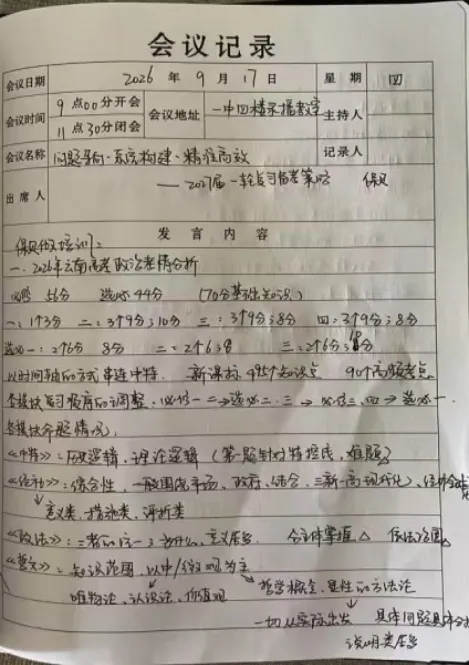 会议记录
会议日期 2026 年 9 月 17 日 星期 四
会议时间 9 点00分开会 11 点30分闭会 会议地址 一中四楼录播教室 主持人
会议名称 问题导向·系统构建·精准高效 记录人
出席人 ——2027届一轮复习备考策略
发言内容
做培训:
一、2026年云南高考政治考情分析
必修 56分 选必 44分 (70分基础知识)
一:1个3分 二:3个9分;10分 三:3个9分;8分 四:3个9分;8分
选必一:2个6分 8分 二:2个6;8 三:2个6分;
以时间轴的方式串连中特. 新课标,495个知识点 90个高频考点
各模块复习顺序的调整,必修一二→选必二.三→必修三、四→选必一.
各模块命题情况:
《中特》:历史逻辑、理论逻辑(第一题针对特控线,难题)
《经社》:综合性、市场、政府、结合、
意义类、措施类、评析类
《政法》:三者的统一;为什么、意义居多. 各主体掌握△ 依法治国△
《哲文》:知识范围,以中/微观为主
唯物论、认识论、价值观 哲学概念,显性的方法论
一切从实际出发 具体问题具体分析
说明类居多